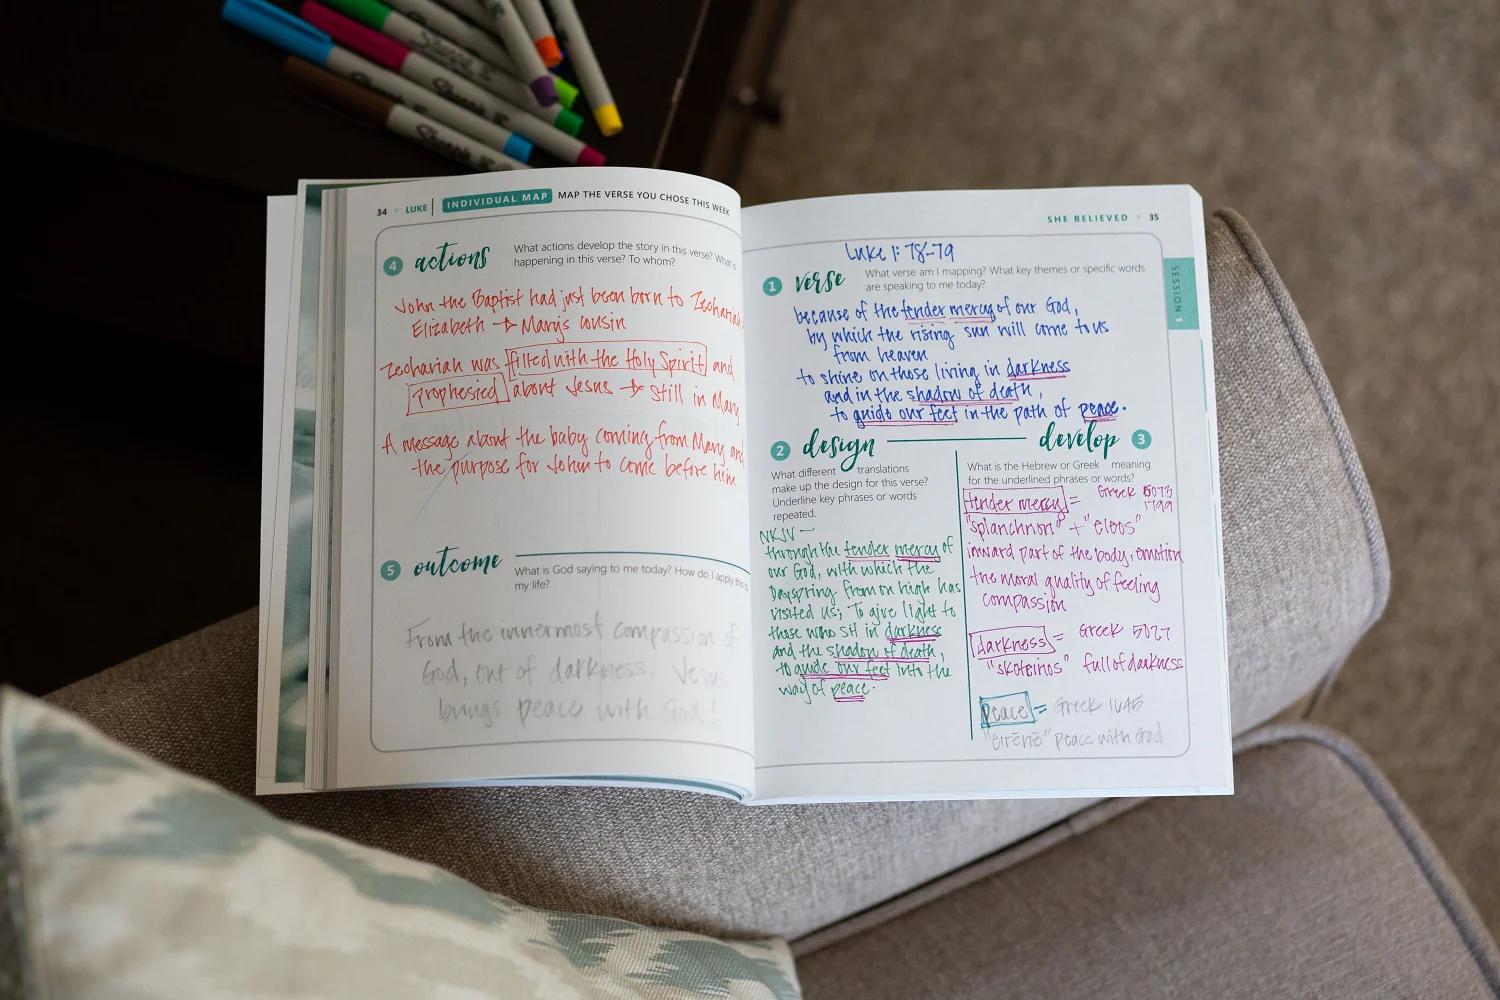 Sharpie
Sharpie
Sharpie
34 LUKE INDIVIDUAL MAP MAP THE VERSE YOU CHOSE THIS WEEK
4 actions
What actions develop the story in this verse? What is
happening in this verse? To whom?
John the Baptist had just been born to Zechariah
Elizabeth → Mary's cousin
Zechariah was filled with the Holy Spirit and
prophesied about Jesus → still in Mary
A message about the baby coming from Mary and
the purpose for John to come before him
5 outcome
What is God saying to me today? How do I apply this to
my life?
From the innermost compassion of
God, out of darkness, Jesus
brings peace with God!
SHE BELIEVED 35
SESSION 1
Luke 1:78-79
1 verse
What verse am I mapping? What key themes or specific words
are speaking to me today?
because of the tender mercy of our God,
by which the rising sun will come to us
from heaven
to shine on those living in darkness
and in the shadow of death,
to guide our feet in the path of peace.
2 design
What different translations
make up the design for this verse?
Underline key phrases or words
repeated.
NKJV —
through the tender mercy of
our God, with which the
Dayspring from on high has
visited us; To give light to
those who sit in darkness
and the shadow of death,
to guide our feet into the
way of peace.
develop 3
What is the Hebrew or Greek meaning
for the underlined phrases or words?
tender mercy = Greek 5073
1799
"splanchnon" + "eleos"
inward part of the body, emotion
the moral quality of feeling
compassion
darkness = Greek 5027
"skoteinos" full of darkness
peace = Greek 1645
"eirēnē" peace with God